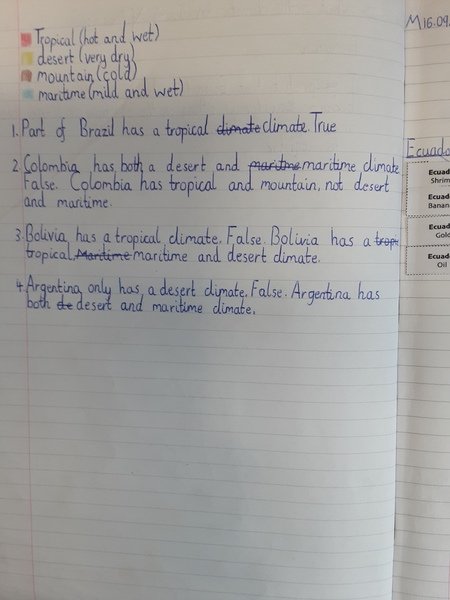 Tropical (hot and wet)
desert (very dry)
mountain (cold)
maritime (mild and wet)
1. Part of Brazil has a tropical climate climate. True
2. Colombia has both a desert and maritime maritime climate
False. Colombia has tropical and mountain, not desert
and maritime.
3. Bolivia has a tropical climate. False. Bolivia has a trop
tropical, Mardime maritime and desert climate.
4. Argentina only has a desert climate. False. Argentina has
both de desert and maritime climate.
M16.09.
Ecuado
Ecuad
Shrim
Ecuad
Banan
Ecuad
Gold
Ecuad
Oil